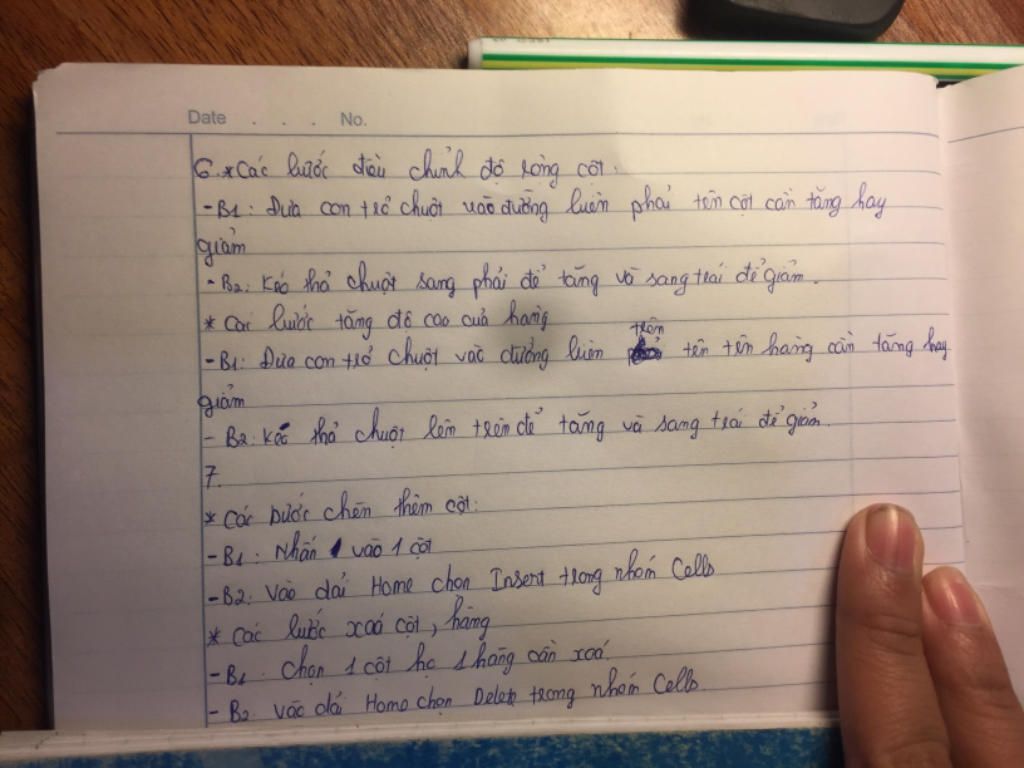 Date . . . No.
6. * Các bước điều chỉnh độ rộng cột:
- B1: Đưa con trỏ chuột vào đường biên phải tên cột cần tăng hay
giảm
- B2: Kéo thả chuột sang phải để tăng và sang trái để giảm.
* Các bước tăng độ cao của hàng
- B1: Đưa con trỏ chuột vào đường biên trên tên tên hàng cần tăng hay
giảm
- B2: Kéo thả chuột lên trên để tăng và sang trái để giảm.
7.
* Các bước chèn thêm cột:
- B1: Nhấn vào 1 cột
- B2: Vào dải Home chọn Insert trong nhóm Cells
* Các bước xoá cột, hàng
- B1. Chọn 1 cột hc 1 hàng cần xoá.
- B2. Vào dải Home chọn Delete trong nhóm Cells.